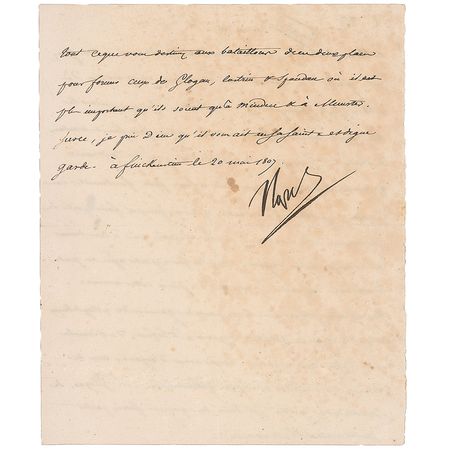 tout ce que vous destinez aux bataillons de ces deux places
pour former ceux de Glogau, Custrin & Spandau où il est
plus important qu'ils soient qu'à Minden & à Munster.
Sur ce, je prie Dieu qu'il vous ait en sa sainte et digne
garde. à finckenstein le 20 mai 1807.
Nap